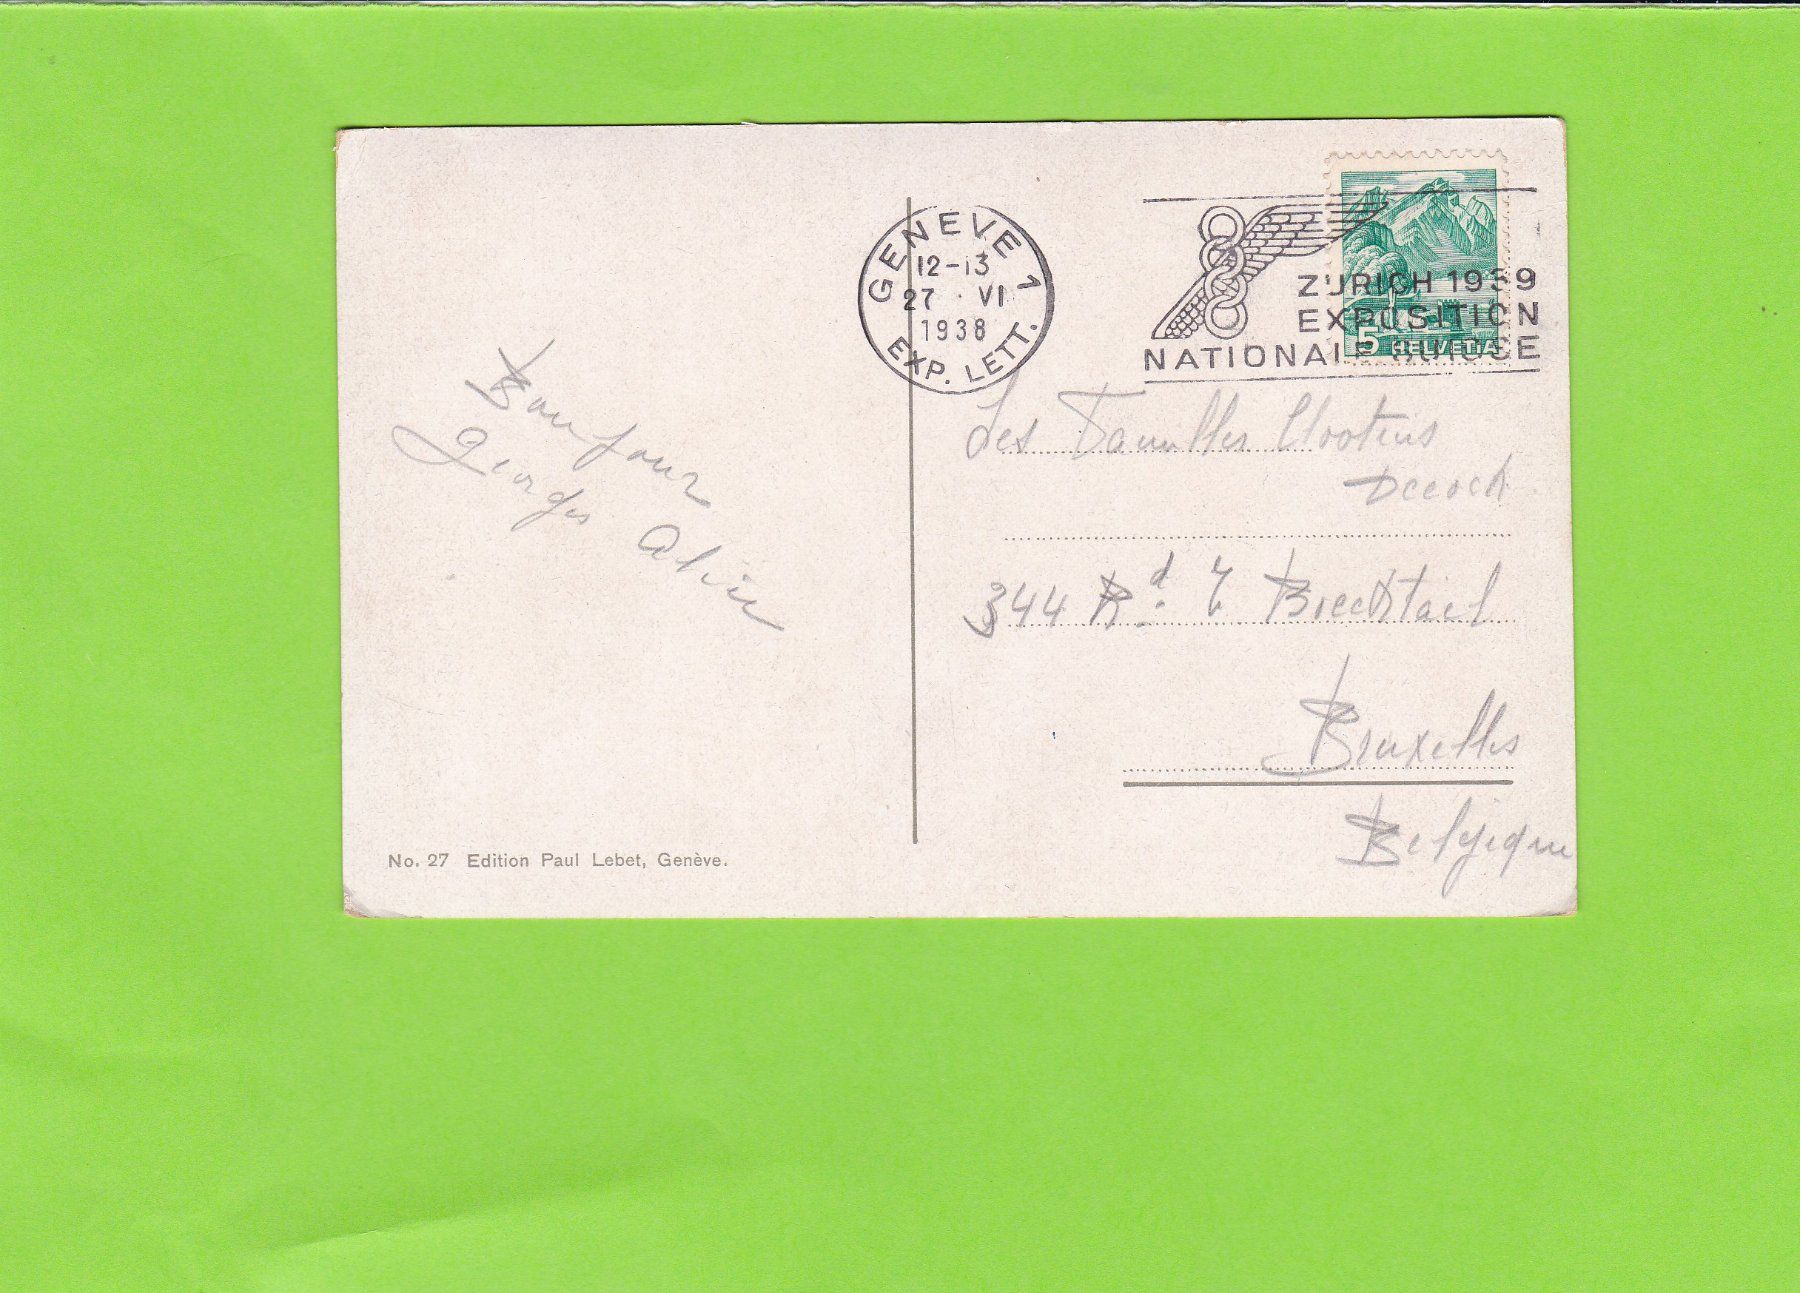 GENEVE 1
12-13
27 · VI
1938
EXP. LETT.
ZURICH 1939
EXPOSITION
NATIONALE SUISSE
5 HELVETIA
Bonjour
Georges
Les Familles Clootens
Decock
344 Rd
Bruxelles
Belgique
No. 27 Edition Paul Lebet, Genève.